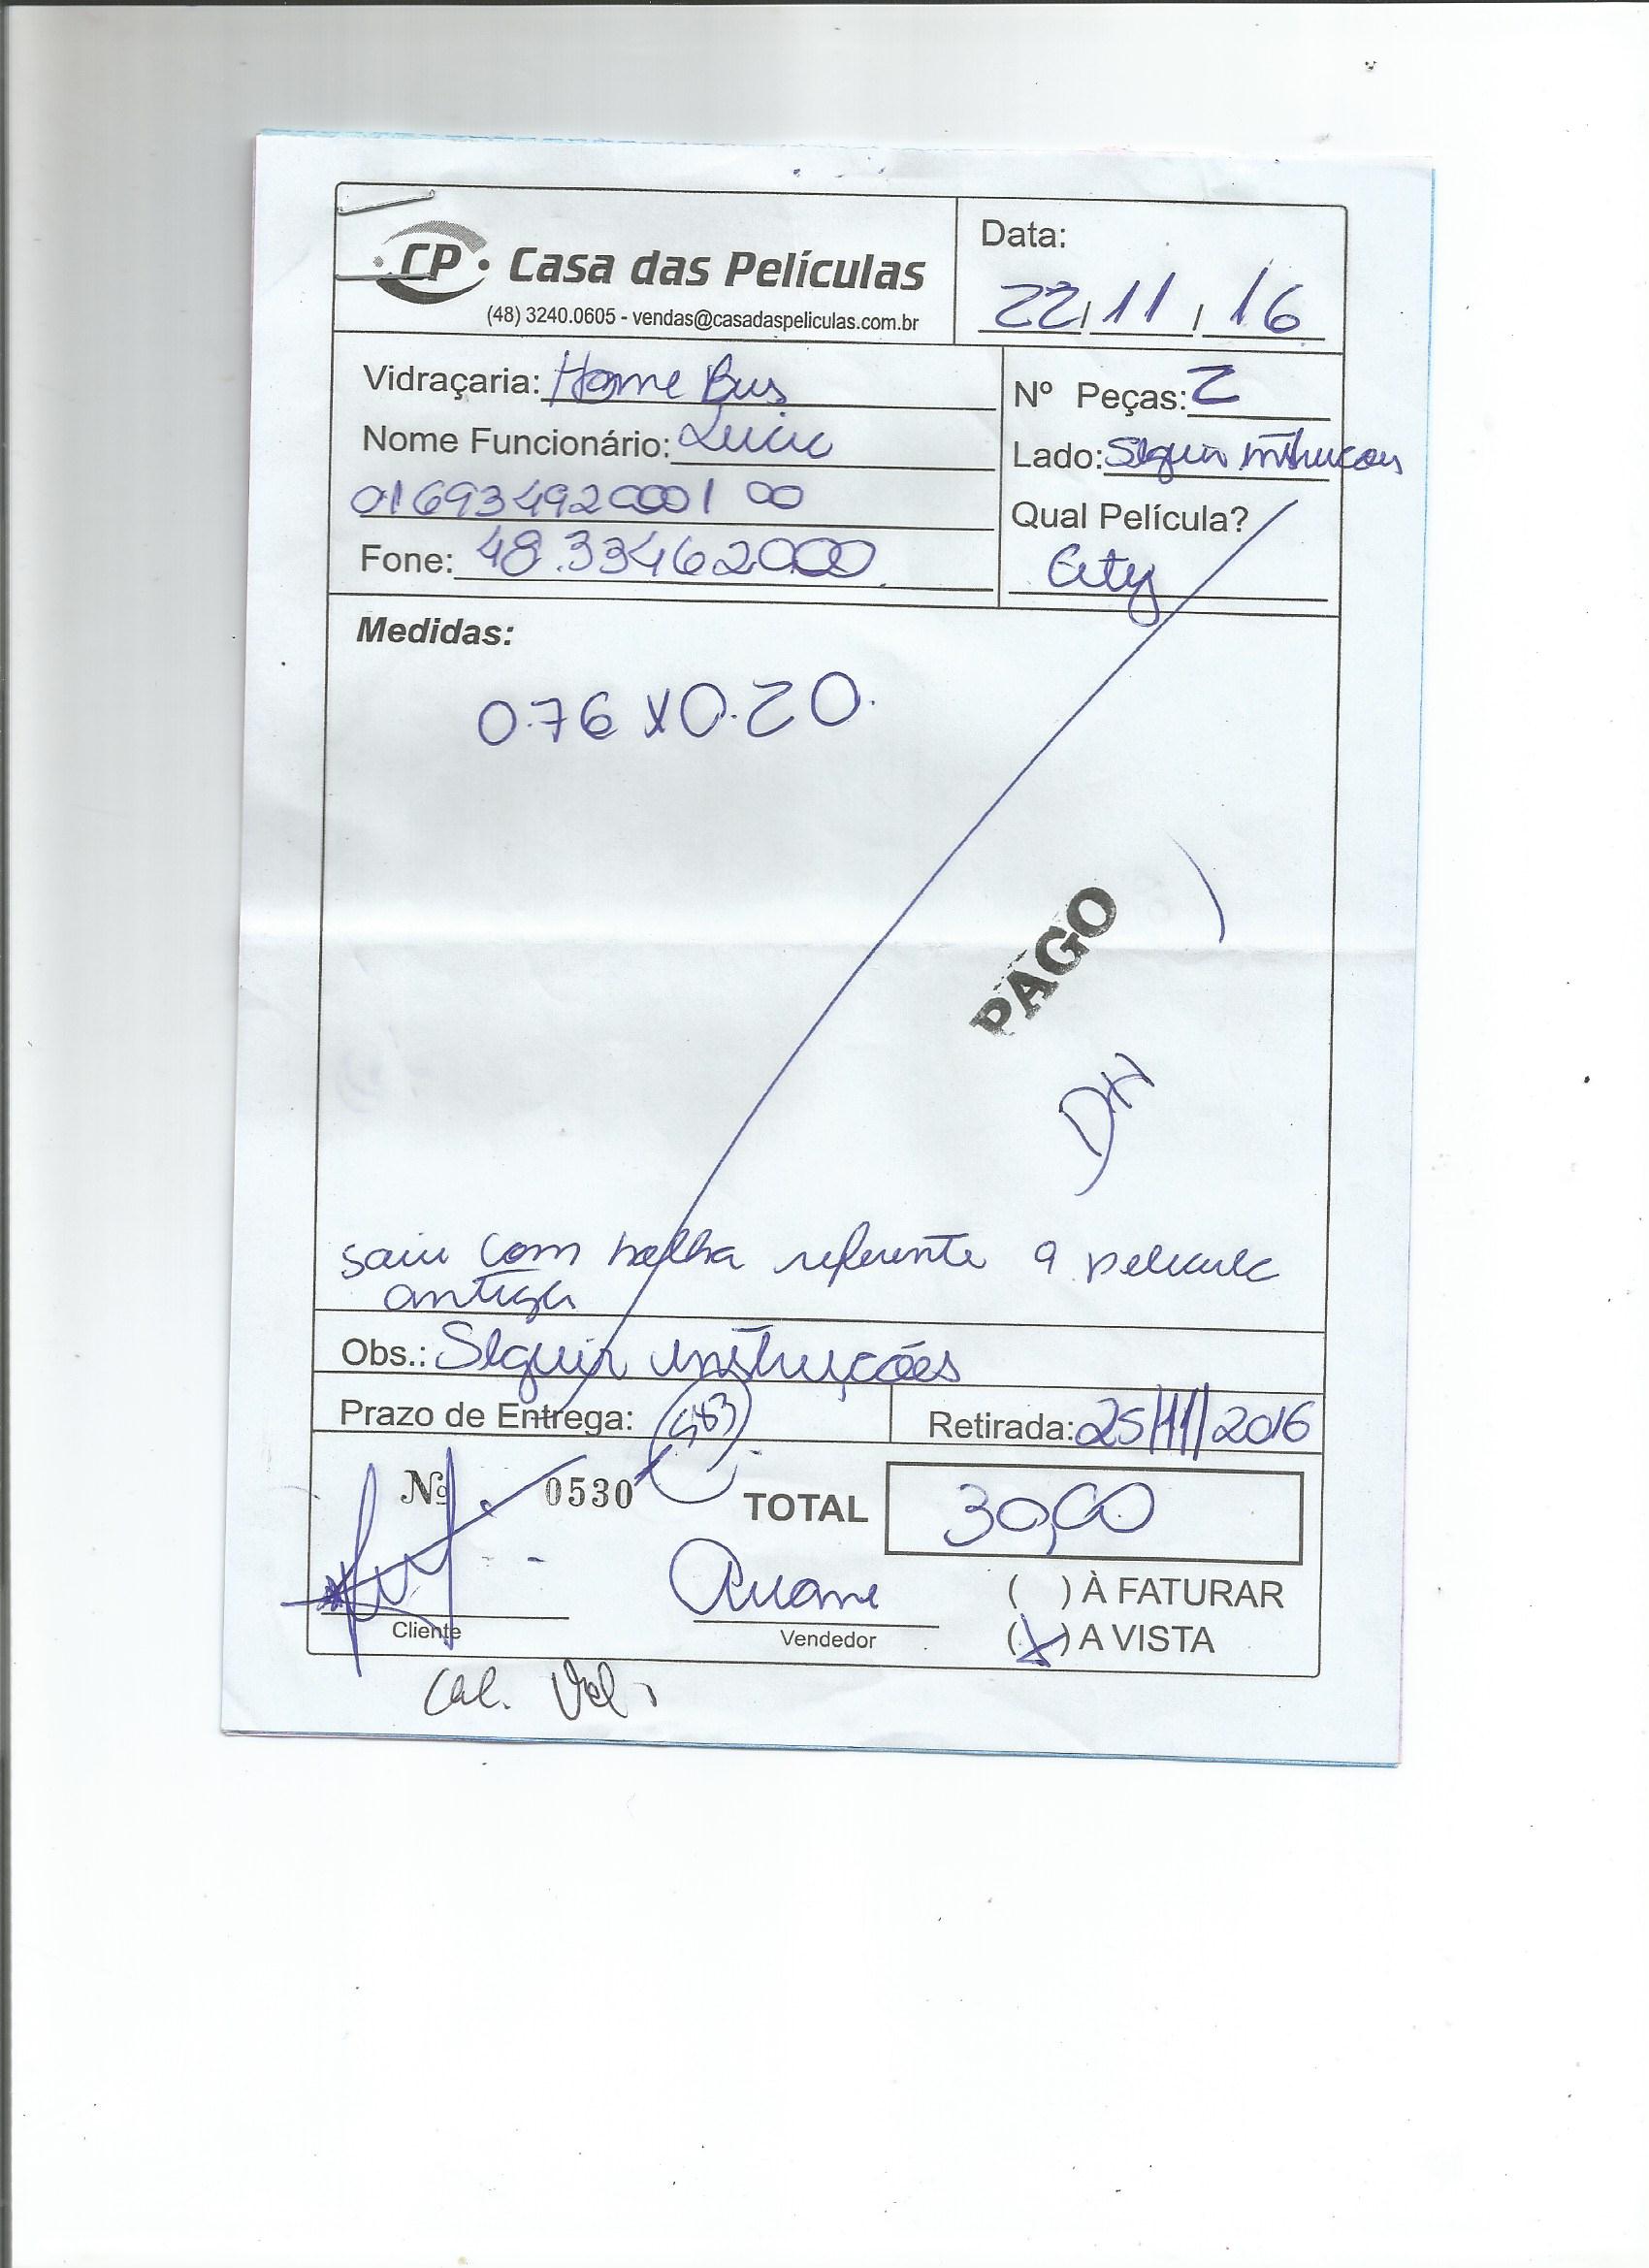 CP Casa das Películas
(48) 3240.0605 - vendas@casadaspeliculas.com.br
Data:
22/11/16
Vidraçaria: Home Bus
Nº Peças: 2
Nome Funcionário:
Lado: Seguir instrucoes
01693492000100
Qual Película?
Fone: 48.33462000
City
Medidas:
0.76 x 0.20.
PAGO
DH
saiu com referente a pelicula
antiga
Obs.: Seguir instruções
Prazo de Entrega:
Retirada: 25/11/2016
Nº 0530
TOTAL 30,00
( ) À FATURAR
Cliente
Vendedor
(x) A VISTA